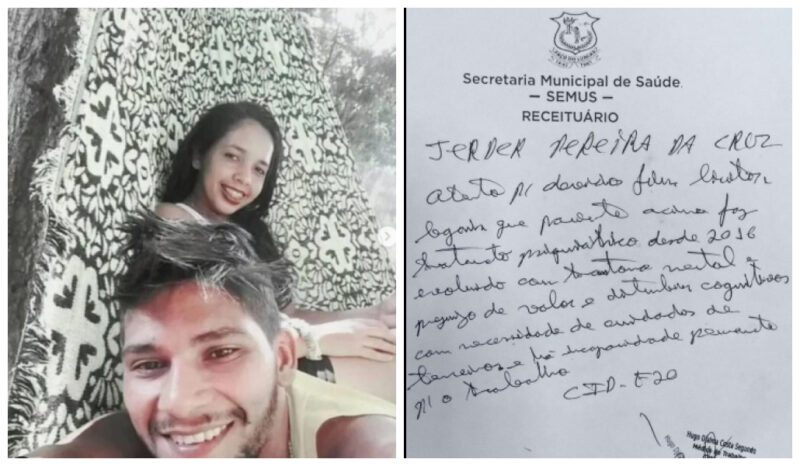 PAÇO DO LUMIAR
Secretaria Municipal de Saúde
— SEMUS —
RECEITUÁRIO
JERDER PEREIRA DA CRUZ
Atesto p/ devido fins
que paciente acima faz
tratamento psiquiátrico desde 2016
evoluindo com transtorno mental e
prejuízo de valor e distúrbios cognitivos
com necessidade de cuidados de
terceiros e há incapacidade permanente
p/ o trabalho
CID-F20
Hugo Djalma Costa Segundo
Médico do Trabalho